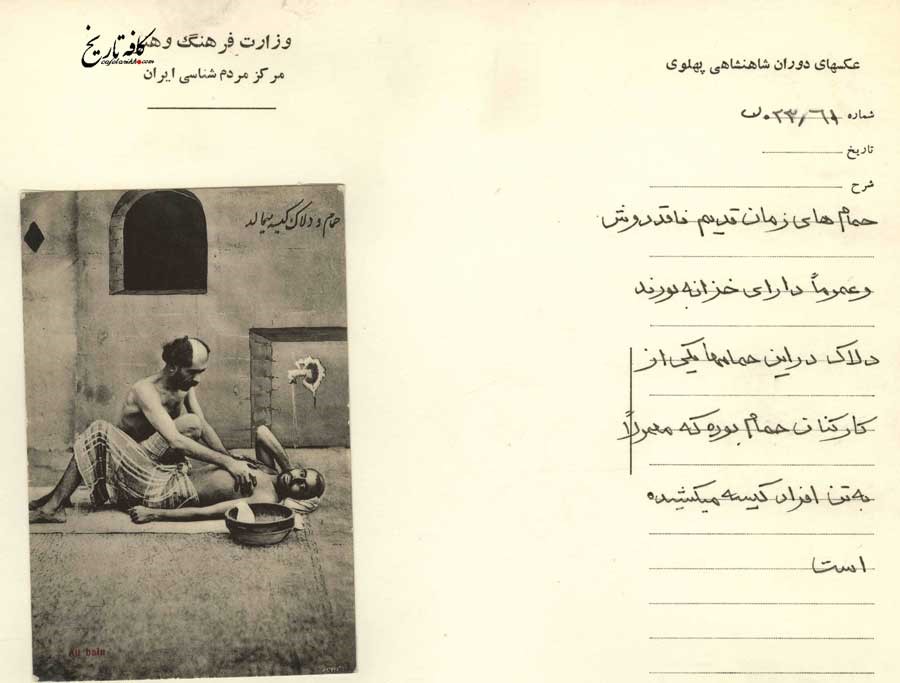 وزارت فرهنگ وهنر
مرکز مردم شناسی ایران
کافه تاریخ
cafetarikh.com
عکسهای دوران شاهنشاهی پهلوی
شماره
تاریخ
شرح
حمام های زمان قدیم فاقد دوش
وعموماً دارای خزانه بودند
دلاک در این حمامها یکی از
کارکنان حمام بوده که معمولاً
به تن افراد کیسه میکشیده
است
حمام و دلاک کیسه میمالد
Au bain